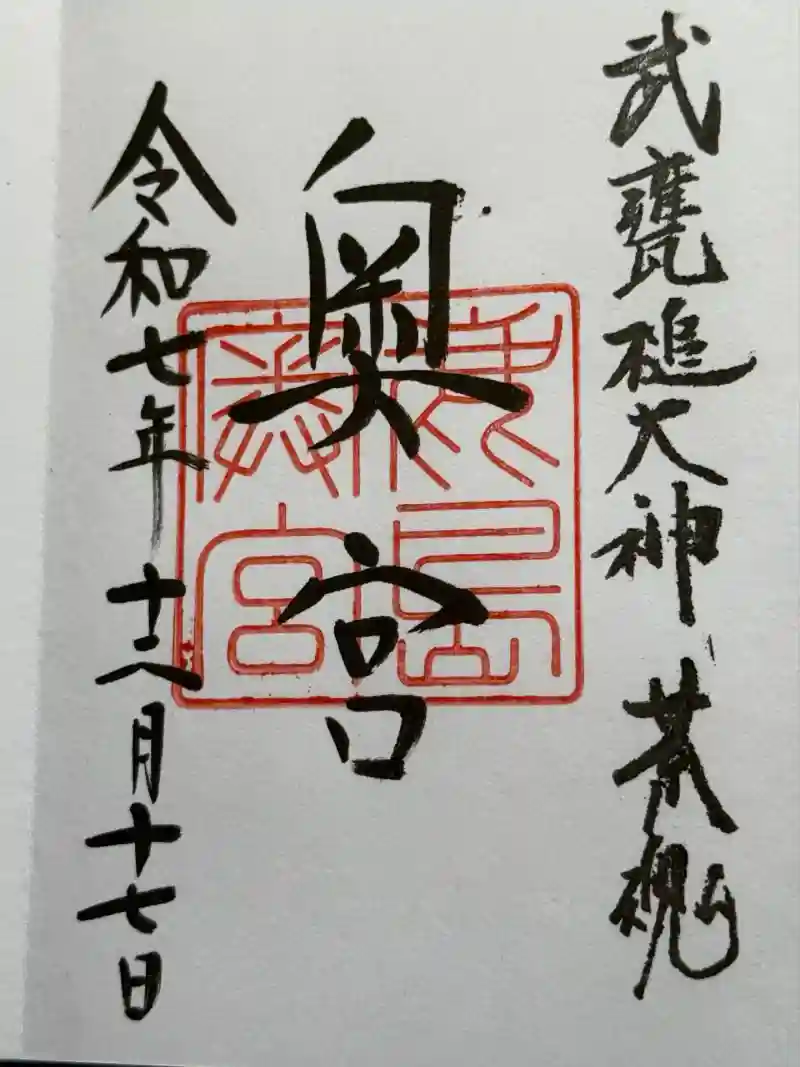 武甕槌大神 荒魂
奥宮
鹿島奥宮
令和七年 十二月十七日